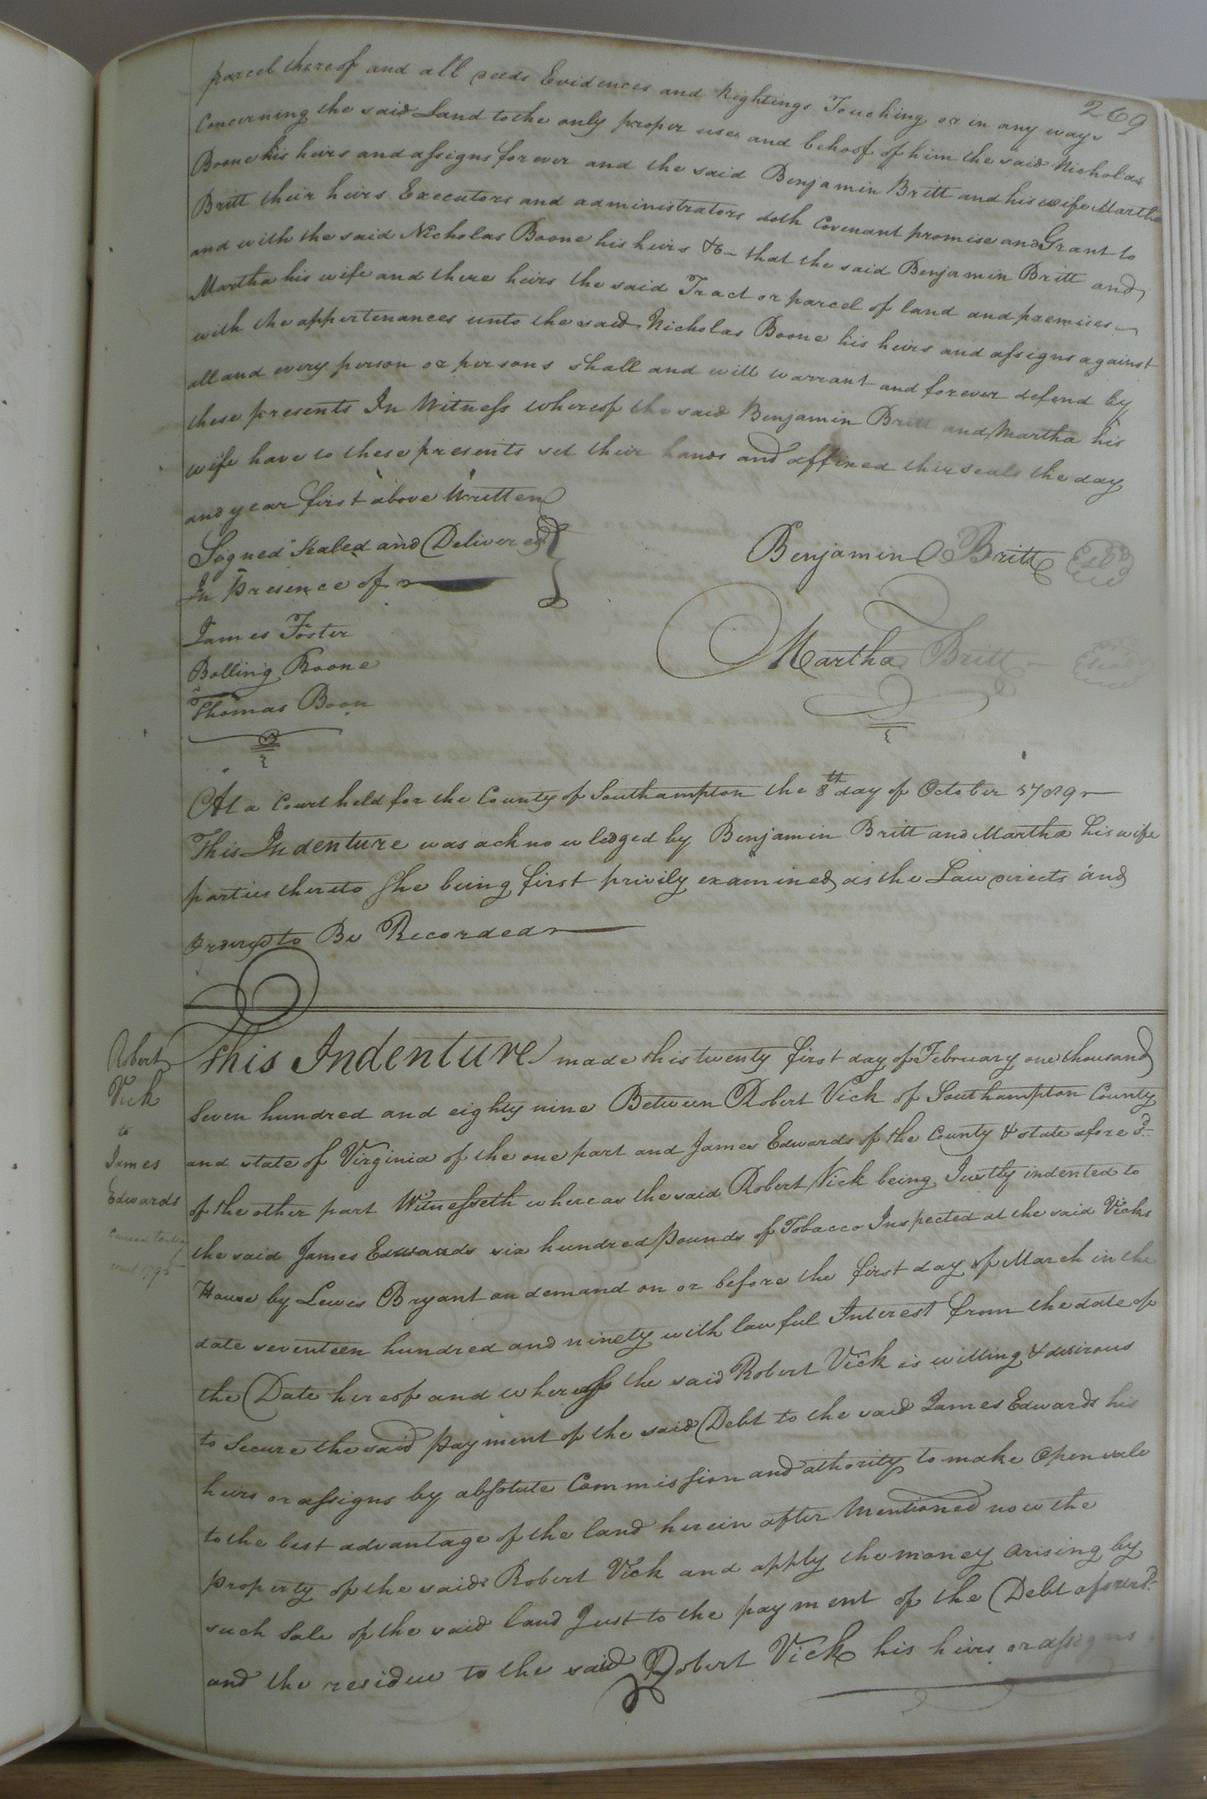 269
parcel thereof and all deeds Evidences and Rightings Touching or in any ways
Concerning the said Land to the only proper use and behoof of him the said Nicholas
Boone his heirs and assigns forever and the said Benjamin Britt and his wife Martha
Britt their heirs Executors and administrators doth Covenant promise and Grant to
and with the said Nicholas Boone his heirs &c that the said Benjamin Britt and
Martha his wife and there heirs the said Tract or parcel of land and premises
with the appertenances unto the said Nicholas Boone his heirs and assigns against
all and every person or persons shall and will warrant and forever defend by
these presents In Witness whereof the said Benjamin Britt and Martha his
wife have to these presents set their hands and affixed their seals the day
and year first above Written
Signed Sealed and Delivered
In Presence of
Benjamin Britt
James Foster
Martha Britt
Bolling Boone
Thomas Boon
At a Court held for the County of Southampton the 8th day of October 1789
This Indenture was acknowledged by Benjamin Britt and Martha his wife
parties thereto She being first privily examined as the Law directs and
Ordered to Be Recorded
Robert
Vick
to
James
Edwards
This Indenture made this twenty first day of February one thousand
Seven hundred and eighty nine Between Robert Vick of Southampton County
and state of Virginia of the one part and James Edwards of the County & state afore sd
of the other part Witnesseth whereas the said Robert Vick being Justly indented to
the said James Edwards six hundred pounds of Tobacco Inspected at the said Vicks
House by Lewis Bryant on demand on or before the first day of March in the
date seventeen hundred and ninety with lawful Interest from the date of
the Date hereof and whereas the said Robert Vick is willing & desirous
to Secure the said payment of the said Debt to the said James Edwards his
heirs or assigns by absolute Commission and athority to make Open sale
to the best advantage of the land herein after Mentioned now the
property of the said Robert Vick and apply the money arising by
such Sale of the said land Just to the payment of the Debt aforesd
and the residue to the said Robert Vick his heirs or assigns